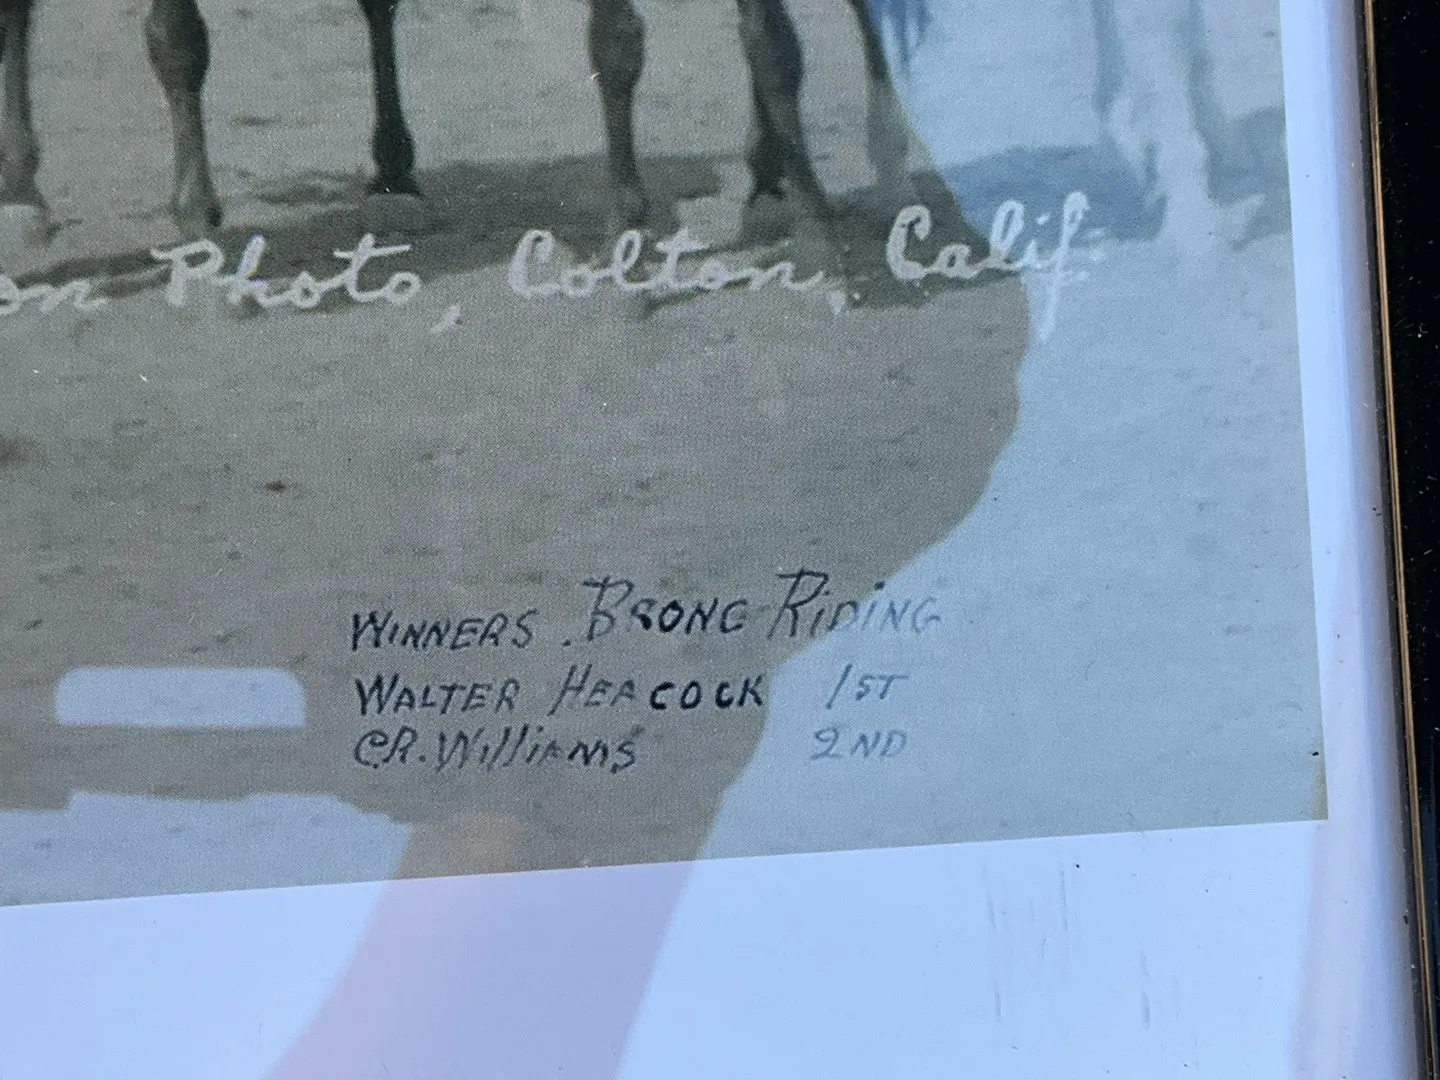 on Photo, Colton, Calif.
WINNERS. BRONC RIDING
WALTER HEACOCK 1ST
CR. Williams 2ND